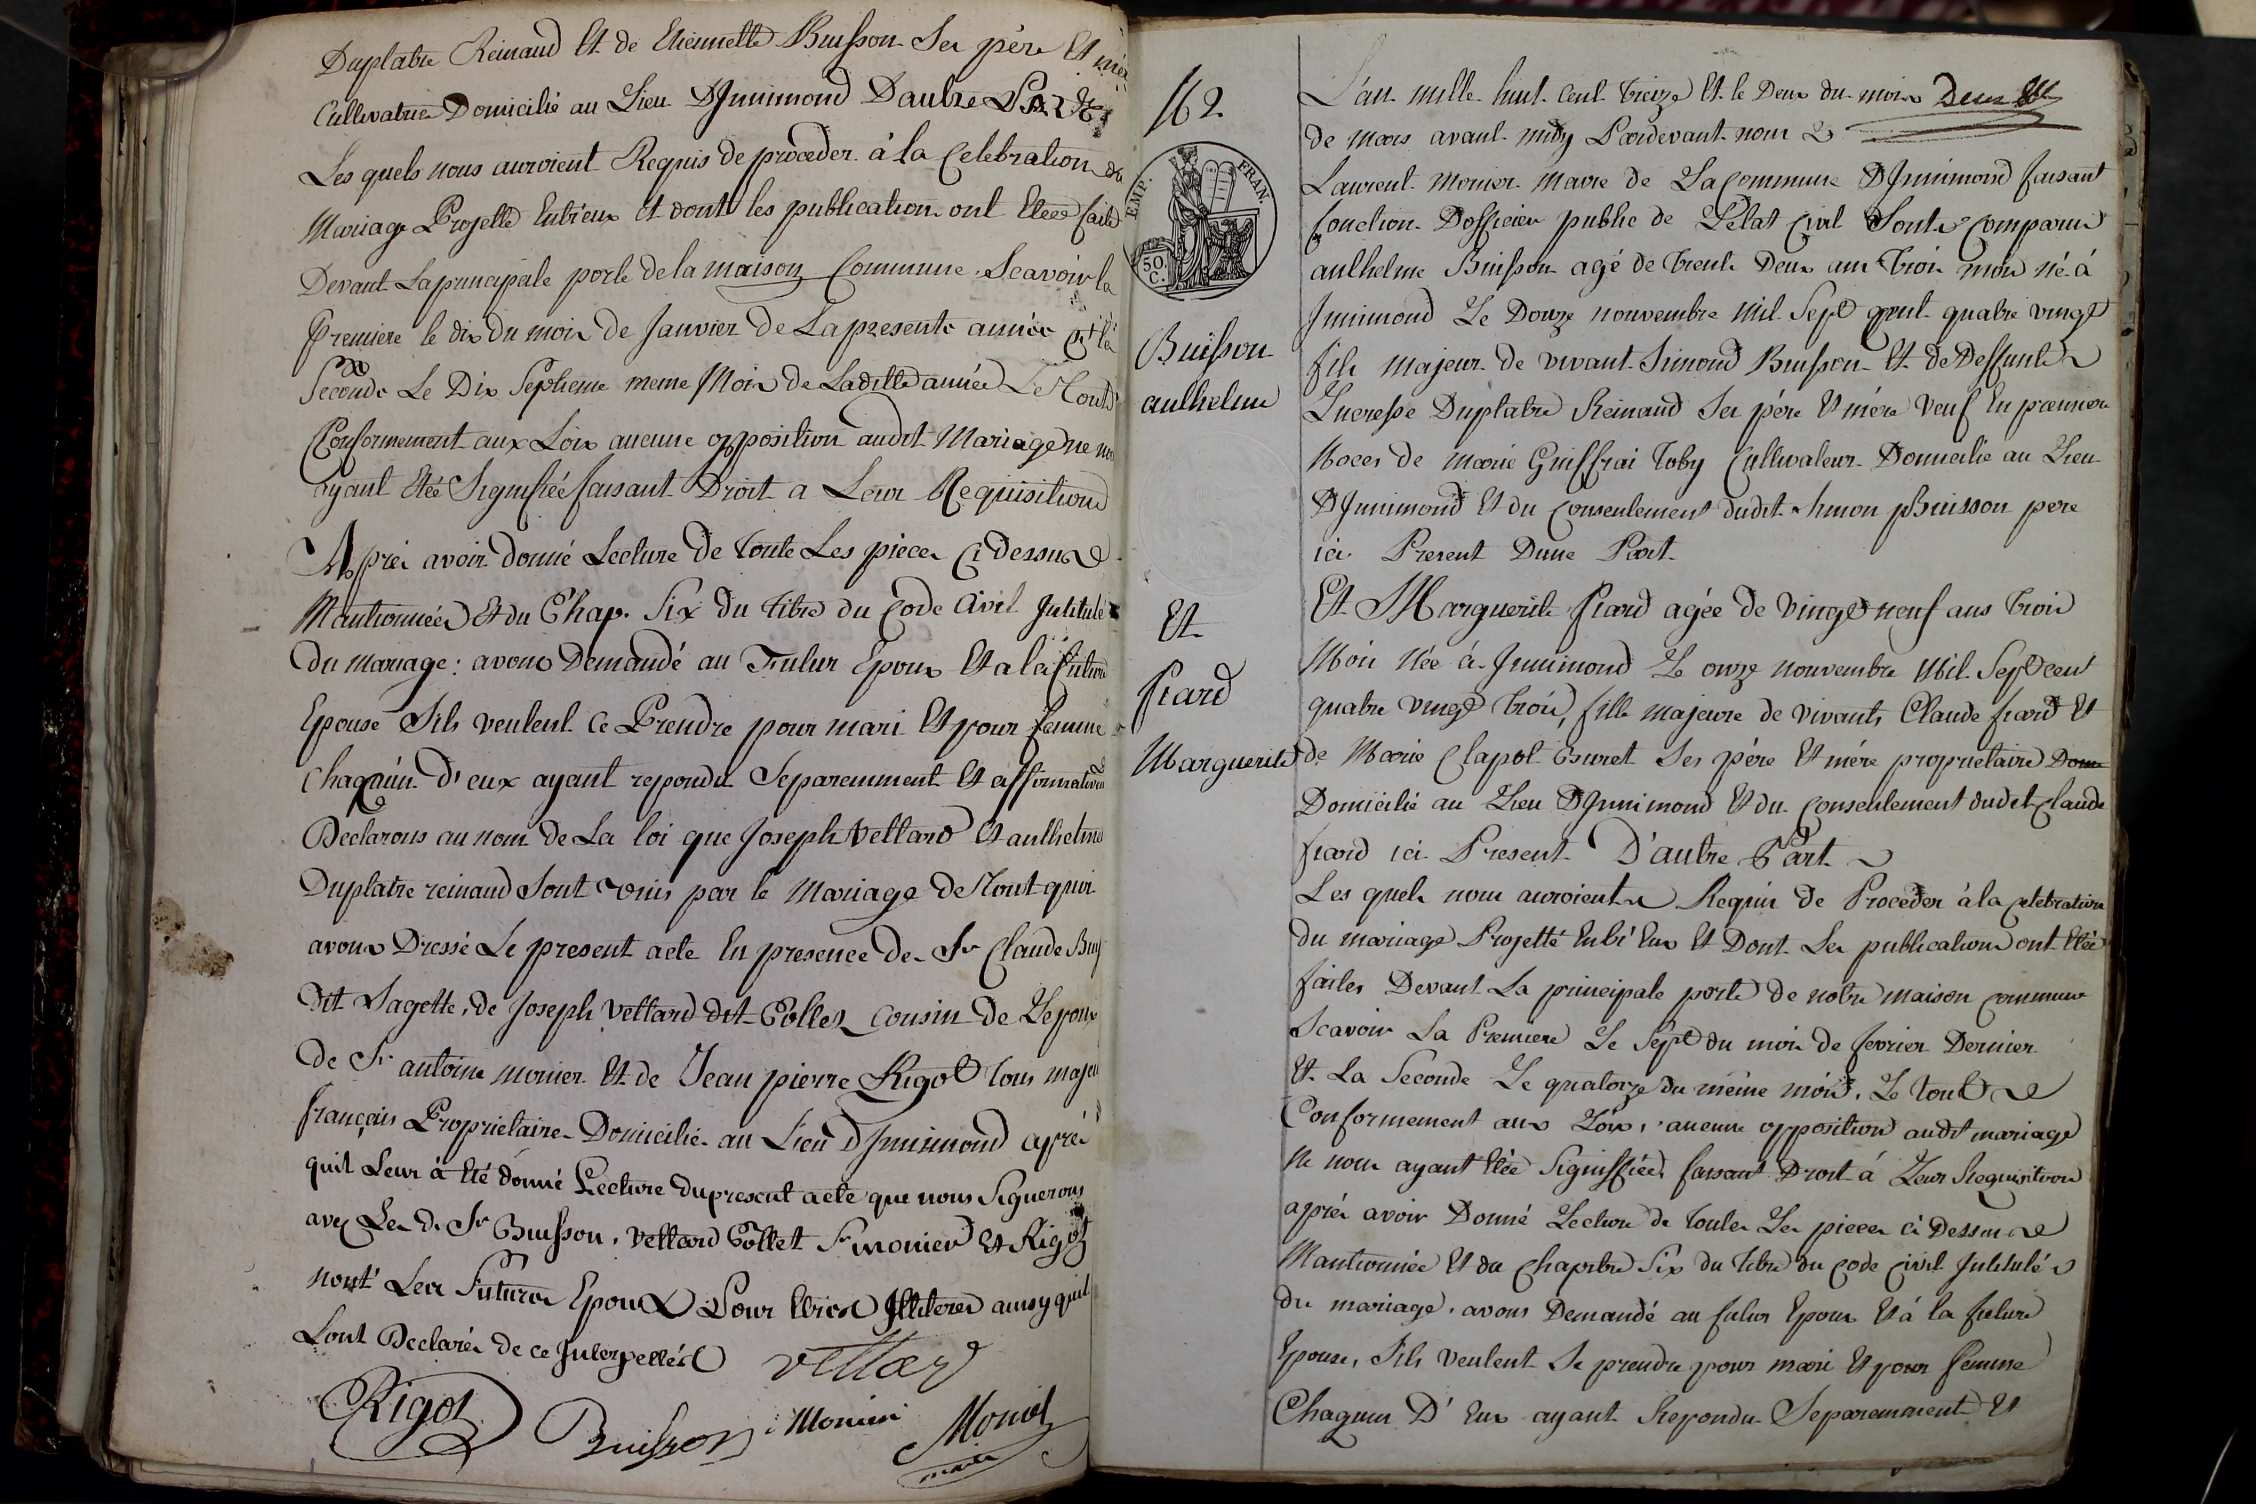 Duplatre Reinaud Et de Etiennette Buisson Ses père Et mère
Cultivatrice Domicilié au Lieu D'Innimond D'autre Part
Les quels nous auroient Requis de proceder à la Celebration du
Mariage Projetté Entr'eux et dont les publication ont Etées faite
Devant La principale porte de la maison Commune. Scavoir la
Premiere le dix du mois de Janvier de La presente année et la
Seconde Le Dix Septieme meme Mois de Laditte année Le Tout
Conformement aux Loix aucune opposition audit Mariage ne nous
ayant Etée Signifiée faisant Droit a Leur Requisition
Après avoir donné Lecture de toute Les pieces Ci dessus
Mantionnées et du Chap. Six du titre du Code Civil Intitulé
du mariage: avons Demandé au Futur Epoux Et a la future
Epouse Sils veulent Ce Prendre pour mari Et pour femme
Chaquun d'eux ayant repondu Separemment Et affirmative
Declarons au nom de La loi que Joseph Vettard Et anthelme
Duplatre reinaud Sont unis par le Mariage de Tout quoi
avons Dressé Le present acte En presence de Sr Claude Buis
dit Sagette, de Joseph Vettard dit Collet cousin de Lepoux
de Sr antoine monier Et de Jean pierre Rigot tous majeu
français Proprietaire Domicilié au Lieu D'Innimond après
quil Leur à Eté donné Lecture du present acte que nous Signerons
avec Les d. Sr Buisson, Vettard Collet Sr monier Et Rigot
nont Les Futures Epoux Pour Etres Illiteres ainsy quil
Lont Declarés de ce Interpellés
Vettard
Rigot
Buisson
Monier
Monier
maire
No 2
EMP. FRAN.
50. C.
Buisson
anthelme
Et
fiard
Marguerite
L'an mille huit Cent treize Et le Deux du mois
de mars avant midy Pardevant nous
Laurent Monier Maire de La Commune D'Innimond faisant
fonction D'officier public de L'état Civil Sont Comparus
anthelme Buisson agé de trente Deux ans trois mois né à
Innimond Le Douze nouvembre Mil Sept Cent quatre vingt
fils majeur de vivant Simond Buisson Et de Deffunte
Lucresse Duplatre Reinaud Ses père Et mère Veuf En premiere
Noces de Marie Guiffrai Toby Cultivateur Domicilié au Lieu
D'Innimond Et du Consentement dudit Simon Buisson pere
ici Present Dune Part
Et Marguerite fiard agée de vingt neuf ans trois
Mois Née à Innimond Le onze nouvembre Mil Sept cent
quatre vingt trois, fille majeure de vivants Claude fiard Et
de Marie Clapot Curet Ses père Et mère proprietaire Dom
Domicilié au Lieu D'Innimond Et du Consentement dudit Claude
fiard ici Present D'autre Part
Les quels nous auroient Requis de Proceder à la Celebration
du mariage Projetté Entr'Eux Et Dont Les publications ont Etée
faites Devant La principale porte de notre maison commune
Scavoir La Premiere Le Sept du mois de fevrier Dernier
Et La Seconde Le quatorze du même mois, Le tout
Conformement aux Loix, aucune opposition audit mariage
Ne nous ayant Etée Signiffiée, faisant Droit à Leur Requisition
après avoir Donné Lecture de toutes Les pieces ci Dessus
Mantionnée Et du Chapitre Six du titre du Code Civil Intitulé
du mariage, avons Demandé au futur Epoux Et à la future
Epouse, Sils veulent Se prendre pour mari Et pour femme
Chaqun D'Eux ayant Repondu Separemment Et